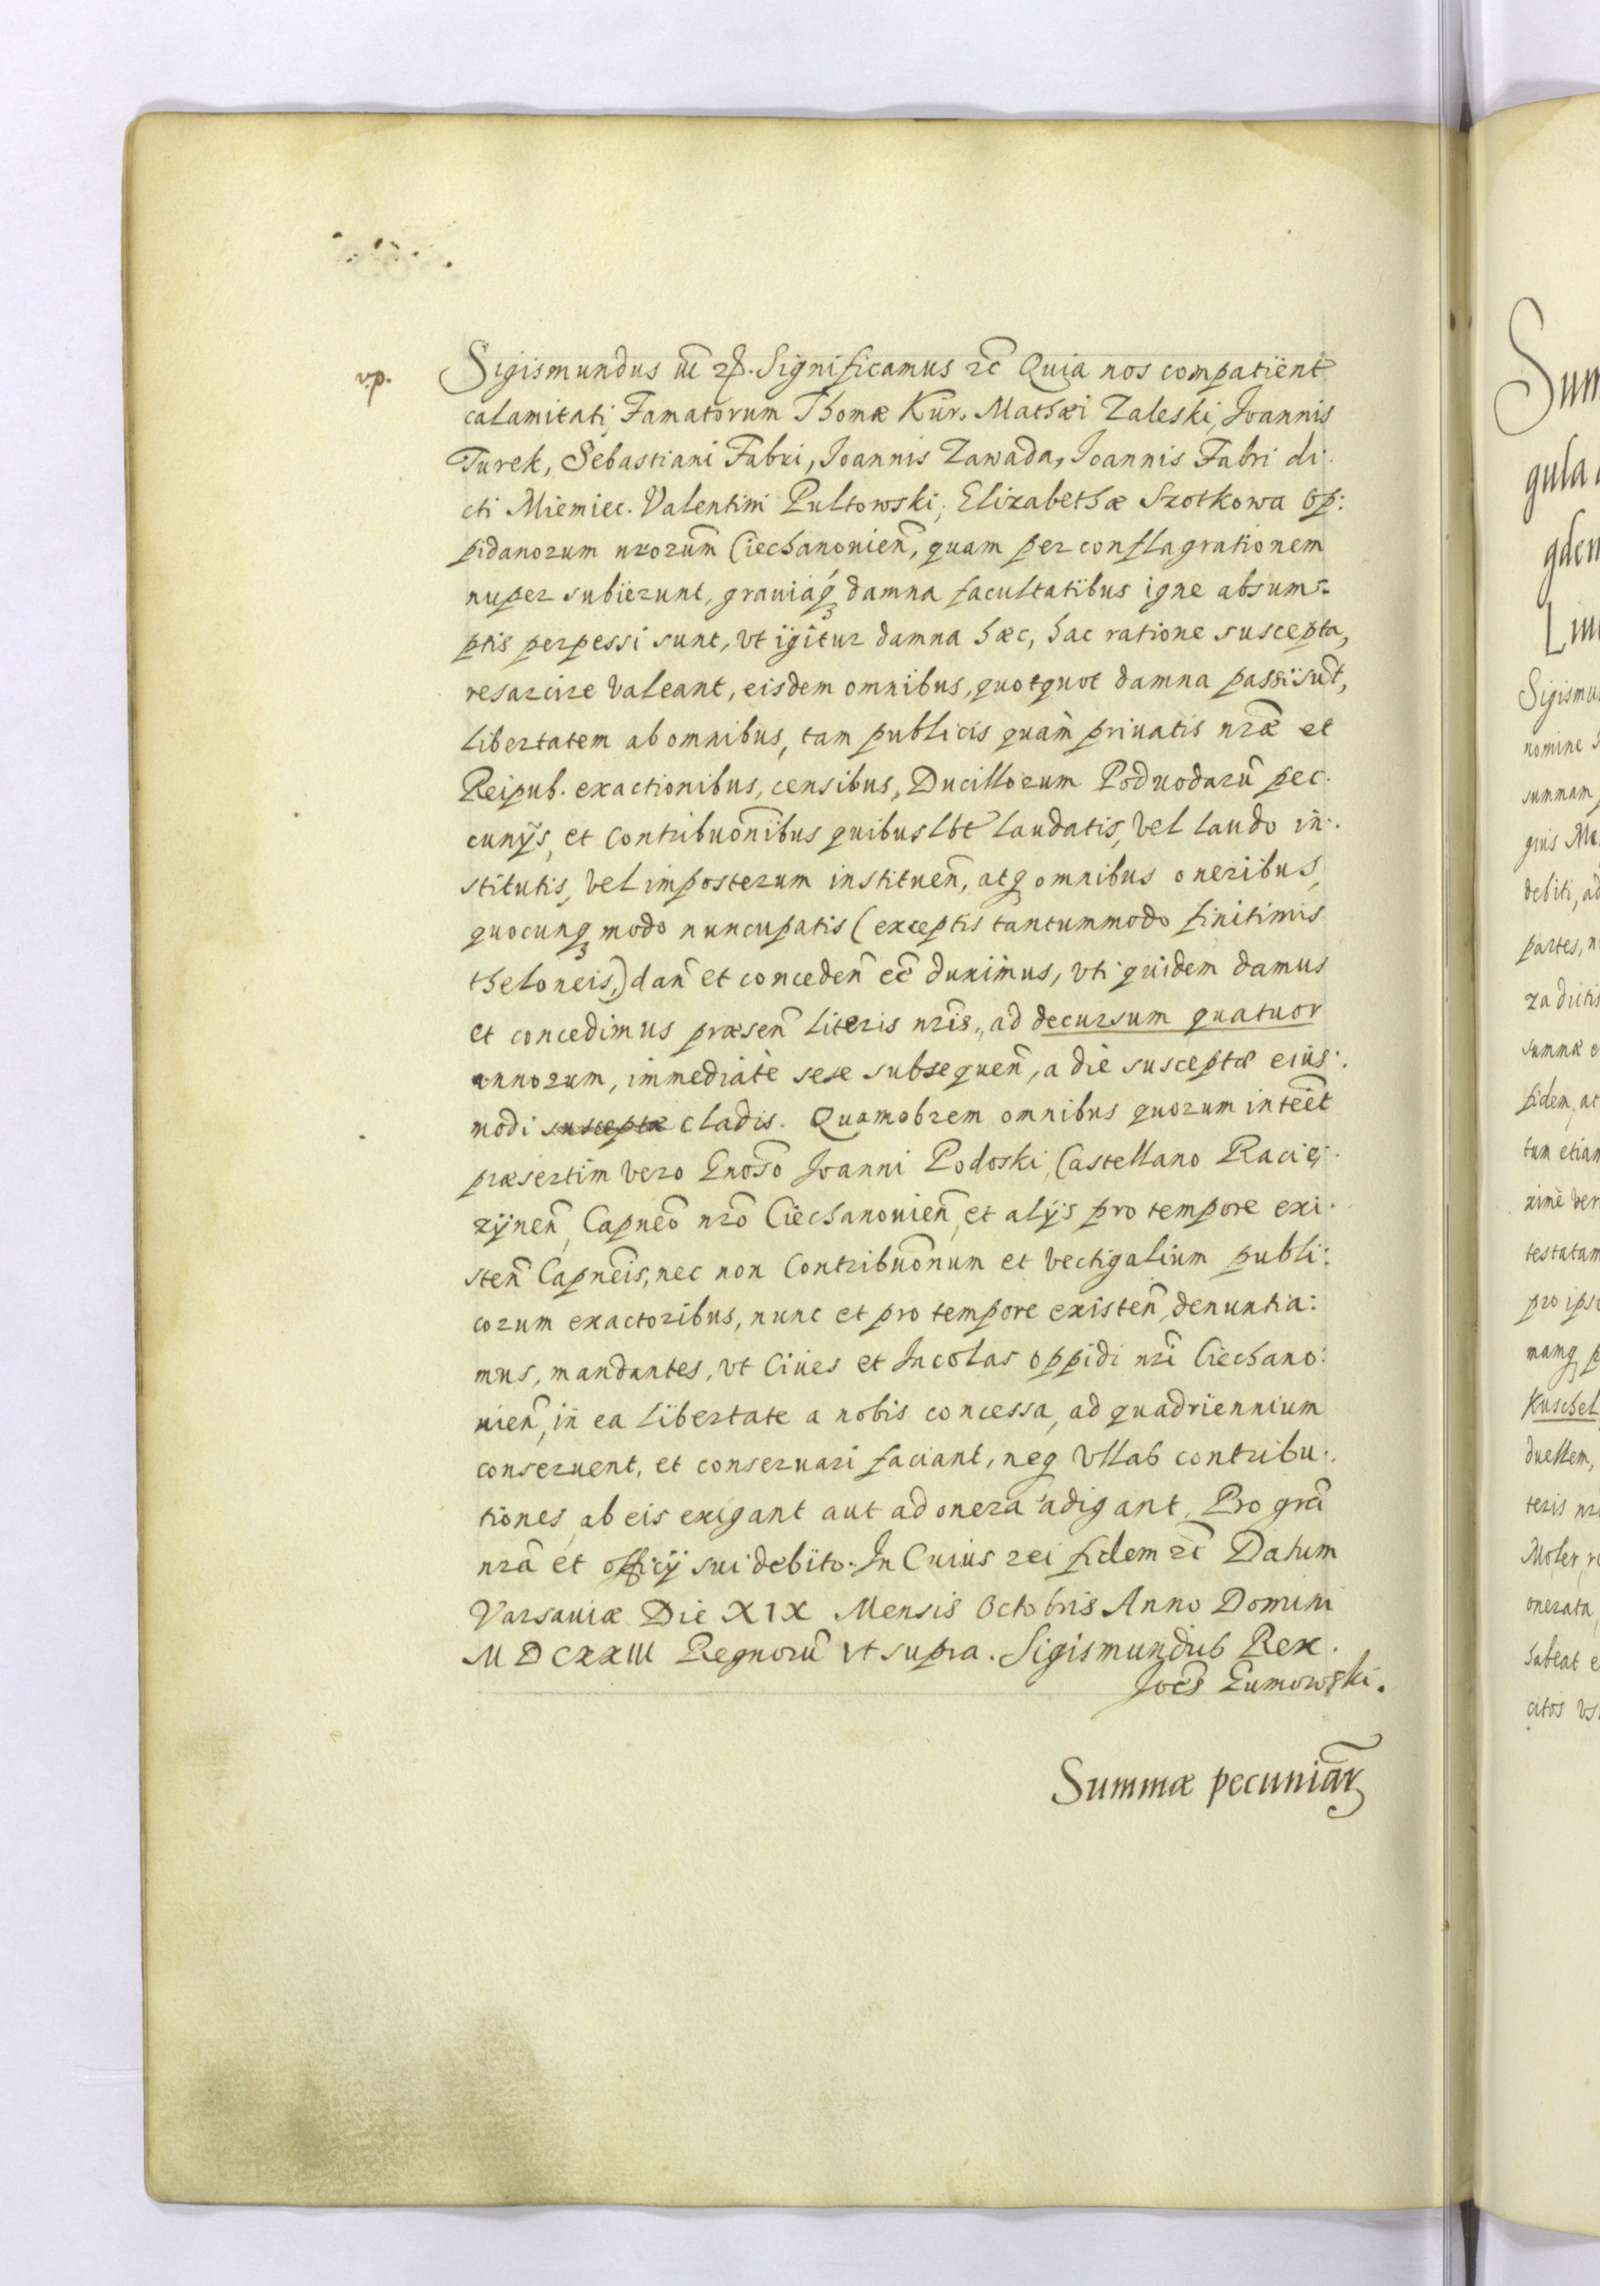 v.p.
Sigismundus III rß. Significamus rc̃ Quia nos compatient
calamitati Famatorum Thomæ Kur. Mathæi Zaleski, Joannis
Turek, Sebastiani Fabri, Joannis Zawada, Joannis Fabri di-
cti Miemiec. Valentini Pultowski, Elizabethæ Szotkowa Op:
pidanorum nrorum̃ Ciechanouien̄, quam per conflagrationem
nuper subierunt, grauiaq́ꝫ damna facultatibus igne absum:
ptis perpessi sunt, vt igitur damna hæc, hac ratione suscepta,
resarcire valeant, eisdem omnibus, quotquot damna passi sunt̃,
libertatem ab omnibus, tam publicis quàm priuatis nr̃æ et
Reipub. exactionibus, censibus, Ducillorum Poduodarũ pec-
cunijs, et Contribuõnibus quibuslbt laudatis, vel laudo in-
stitutis, vel imposterum instituen̄, atqꝫ omnibus oneribus,
quocunqꝫ modo nuncupatis (exceptis tantummodo finitimis
theloneis,) dan̄ et conceden̄ eẽ duximus, vti quidem damus
et concedimus præsen̄ literis nr̃is, ad decursum quatuor
annorum, immediatè sese subsequen̄, a die susceptæ eius-
modi susceptæ cladis. Quamobrem omnibus quorum inteẽt
præsertim vero Gnoso Joanni Podoski, Castellano Racią-
zynen̄, Capneo nro Ciechanouien̄, et alijs pro tempore exi-
sten̄ Capneis, nec non Contribuõnum et vectigalium publi:
corum exactoribus, nunc et pro tempore existen̄, denuntia:
mus, mandantes, vt Ciues et Incolas oppidi nri Ciechano:
uien̄, in ea libertate a nobis concessa, ad quadriennium
conseruent, et conseruari faciant, neqꝫ vllas contribu-
tiones ab eis exigant aut ad onera adigant, Pro grã
nrã et officij sui debito. In Cuius rei fidem rc̃ Datum
Varsauiæ Die XIX Mensis Octobris Anno Domini
M DCXXIII Regnorũ vt supra. Sigismundus Rex.
Joẽs Łumowski.
Summæ pecuniar̃
Sum
gula
gden
Lim
Sigismu
nomine
summam
debiti, ad
partes, n
za dictis
summæ e
fidem, at
tum etiam
ximè ver
testatam
pro ipsi
Kuschel
duellem,
teris nr
Moler
onerata
habeat e
citos vs